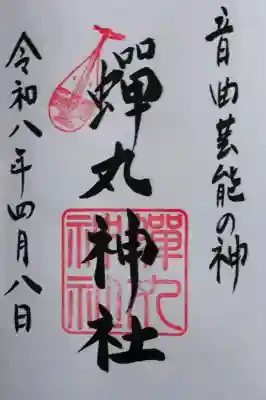 音曲芸能の神
蟬丸神社
蟬丸神社
令和八年四月八日